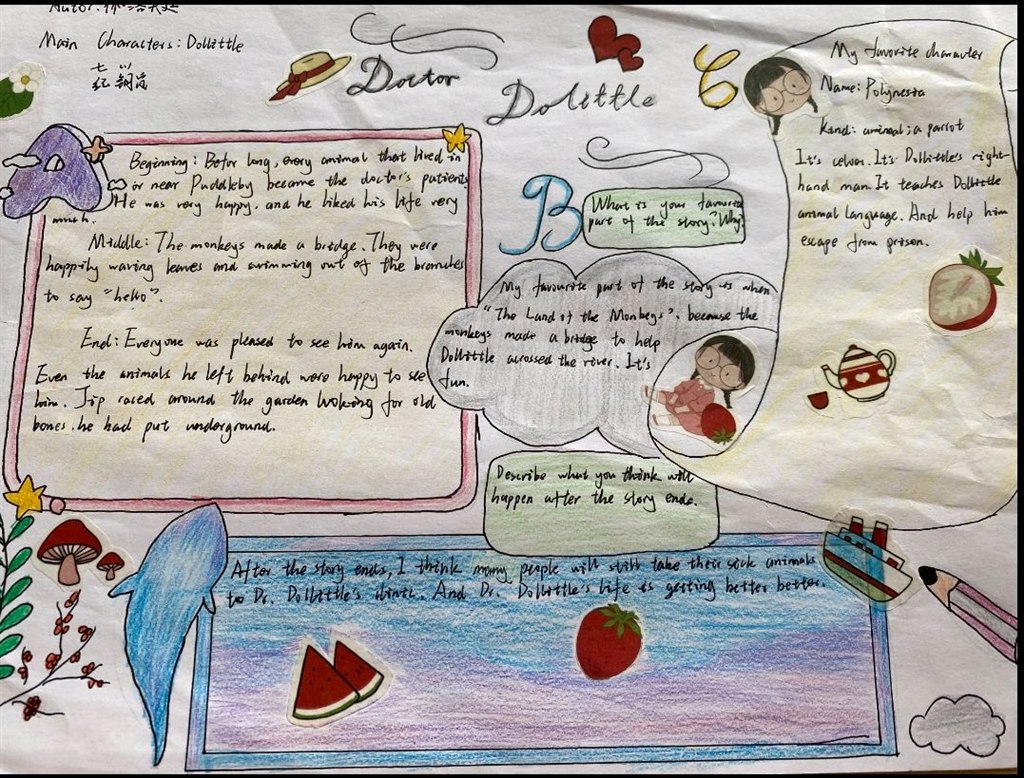 Autor:
Main Characters: Dollittle
Doctor
Dolittle
My favorite character
Name: Polynesia
Kind: animal; a parrot
It's celvor. It's Dollittle's right-
hand man. It teaches Dolittle
animal language. And help him
escape from prison.
Beginning: Befor long, every animal that lived in
or near Puddleby became the doctor's patients
He was very happy, and he liked his life very
much.
Middle: The monkeys made a bridge. They were
happily waving leaves and swimming out of the branches
to say "hello".
End: Everyone was pleased to see him again.
Even the animals he left behind were happy to see
him. Jip raced around the garden looking for old
bones. he had put underground.
B
What is your favourite
part of the story? Why?
My favourite part of the story is when
"The Land of the Monkeys", because the
monkeys made a bridge to help
Dollittle acrossed the river. It's
fun.
Describe what you think will
happen after the story ends.
After the story ends, I think many people will still take their sick animals
to Dr. Dollittle's clinic. And Dr. Dollittle's life is getting better better.